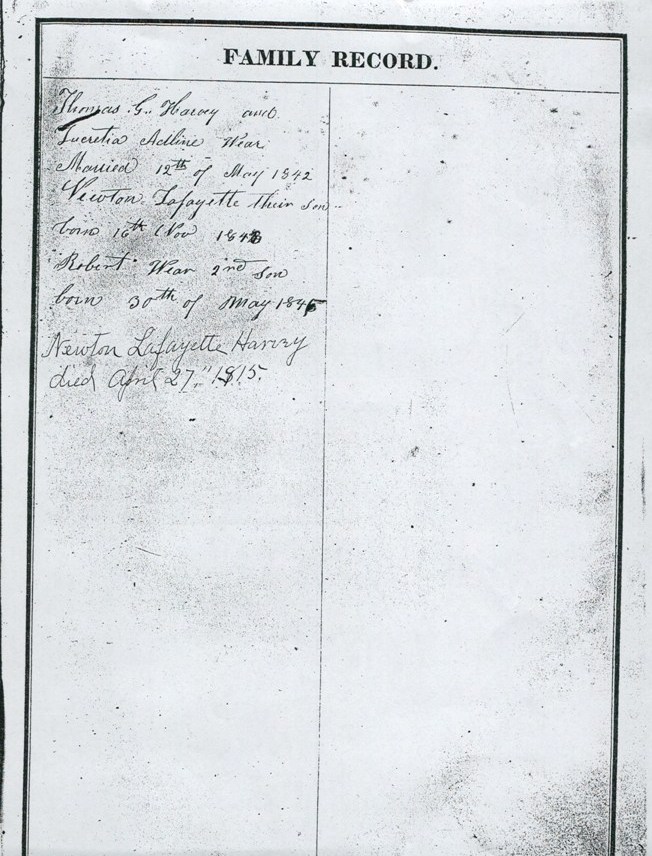 FAMILY RECORD.
Thomas G. Harvey and
Lucretia Adline Wear
Married 12th of May 1842
Newton Lafayette their son
born 16th Nov 1843
Robert Wear 2nd son
born 30th of May
Newton Lafayette Harvey
died April 27." 1915.